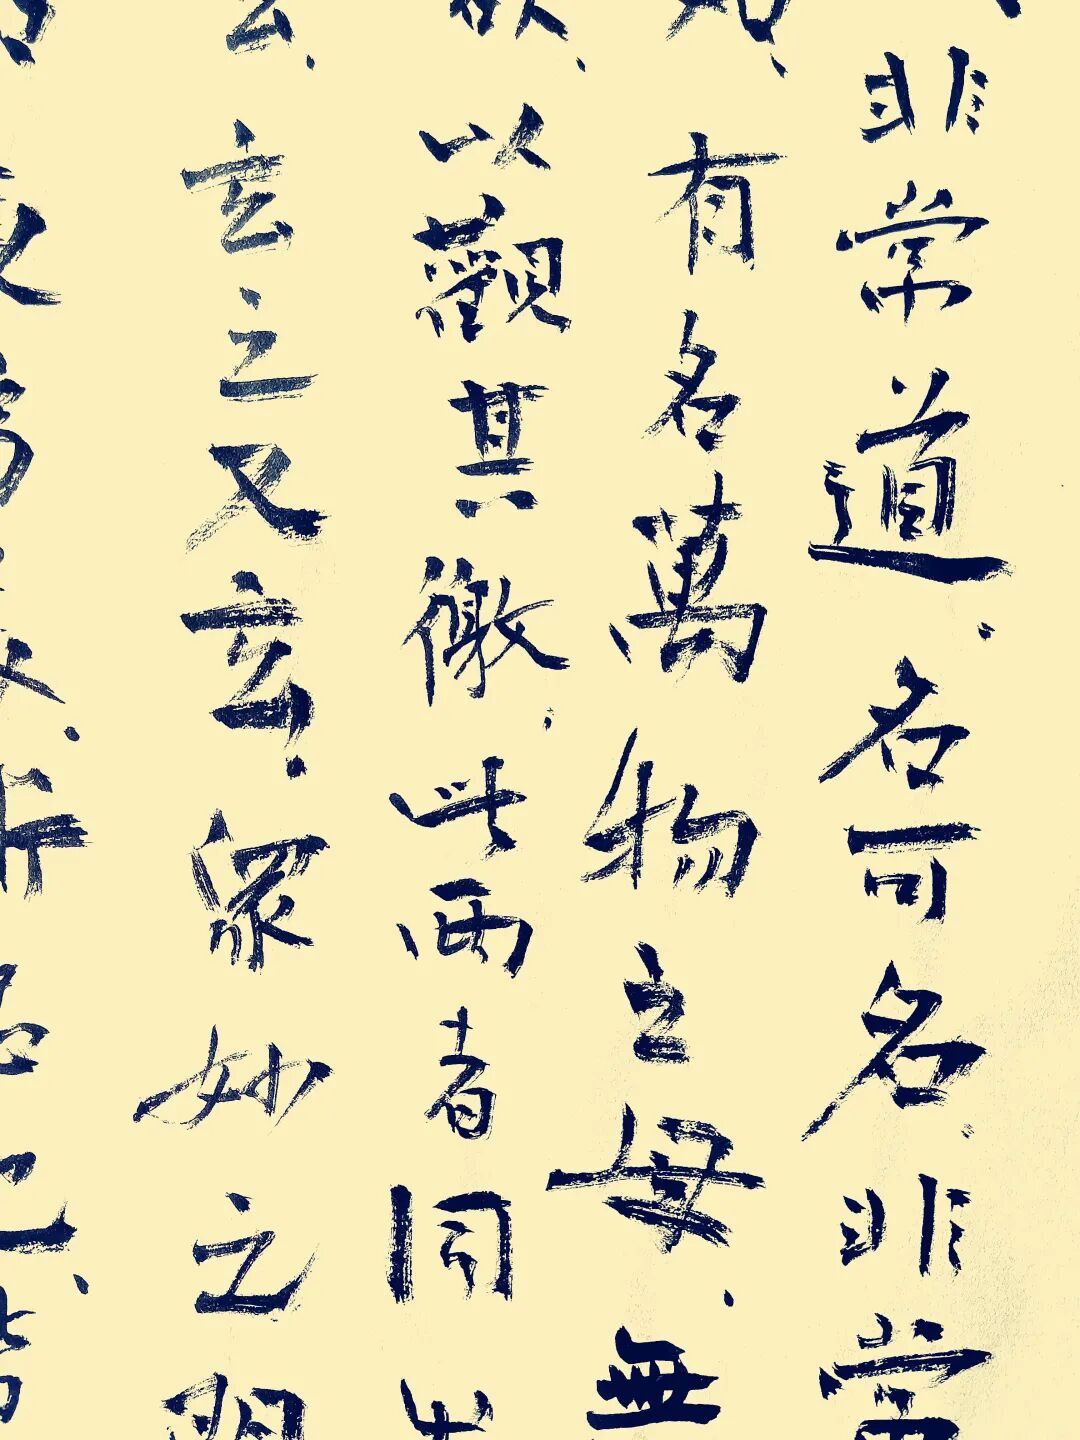 非常道、名可名、非常
有名萬物之母、無
欲、以觀其徼、此兩者同出
玄、玄之又玄、眾妙之門